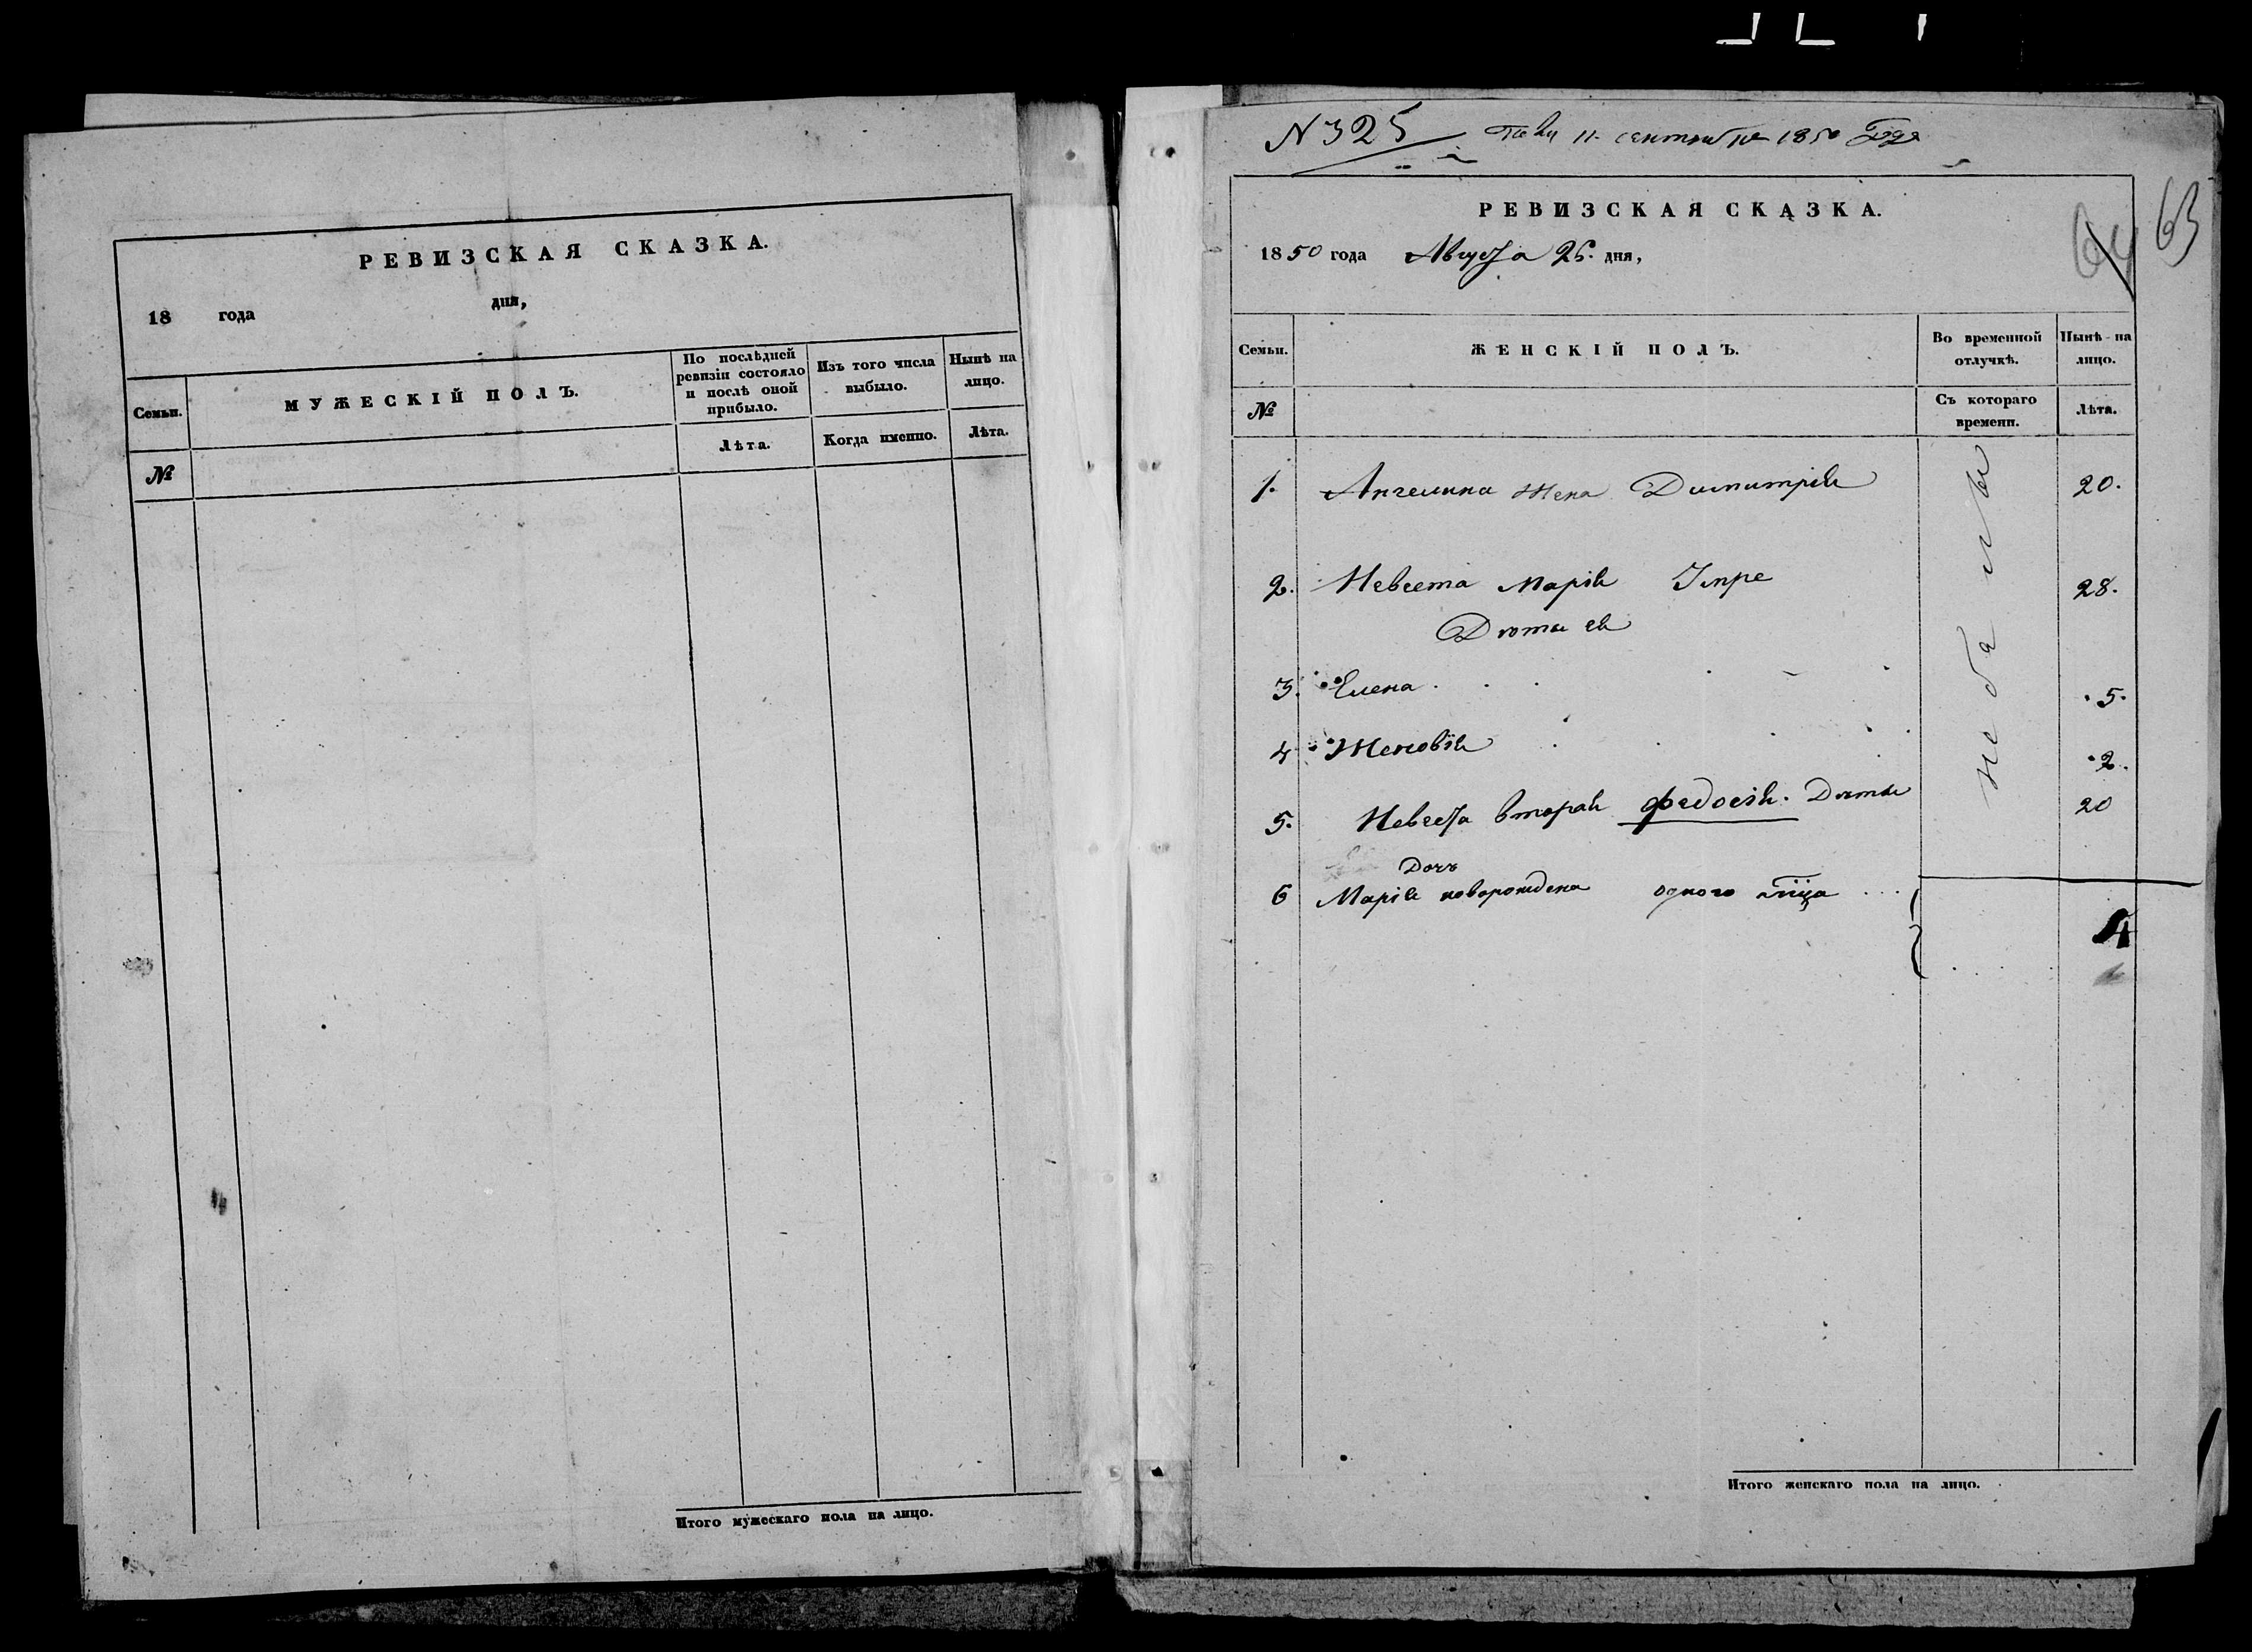 РЕВИЗСКАЯ СКАЗКА.
18 года дня,
Семьи.
МУЖЕСКІЙ ПОЛЪ.
По послѣдней
ревизіи состояло
и послѣ оной
прибыло.
Изъ того числа
выбыло.
Нынѣ на
лицо.
№
Лѣта.
Когда именно.
Лѣта.
Итого мужескаго пола на лицо.
N 325 11 сентября 1850 года
63
РЕВИЗСКАЯ СКАЗКА.
1850 года Августа 26. дня,
Семьи.
ЖЕНСКІЙ ПОЛЪ.
Во временной
отлучкѣ.
Нынѣ на
лицо.
№
Съ котораго
времени.
Лѣта.
1. Ангелина жена Димитрія 20.
2. Невѣста Марія 28.
3. Елена 5.
4 Женовія 2.
5. Невѣста вторая Федосія. 20
Дочь
6 Марія новорождена одного мца
4
Итого женскаго пола на лицо.